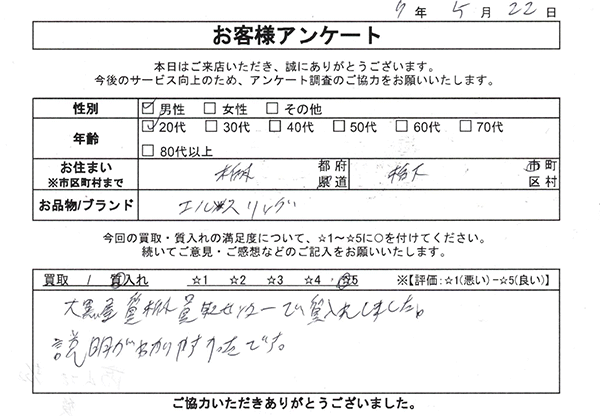 7 年 5 月 22 日
お客様アンケート
本日はご来店いただき、誠にありがとうございます。
今後のサービス向上のため、アンケート調査のご協力をお願いいたします。
性別 ☑ 男性 □ 女性 □ その他
年齢 ☑ 20代 □ 30代 □ 40代 □ 50代 □ 60代 □ 70代
□ 80代以上
お住まい ※市区町村まで 栃木 都府県道 栃木 市町区村
お品物/ブランド エルメス リング
今回の買取・質入れの満足度について、☆1～☆5に○を付けてください。
続いてご意見・ご感想などのご記入をお願いいたします。
買取 / 質入れ ☆1 ☆2 ☆3 ☆4 ☆5 ※【評価：☆1(悪い)－☆5(良い)】
大黒屋 質栃木買取センターで質入れしました。
説明がわかりやすかったです。
ご協力いただきありがとうございました。